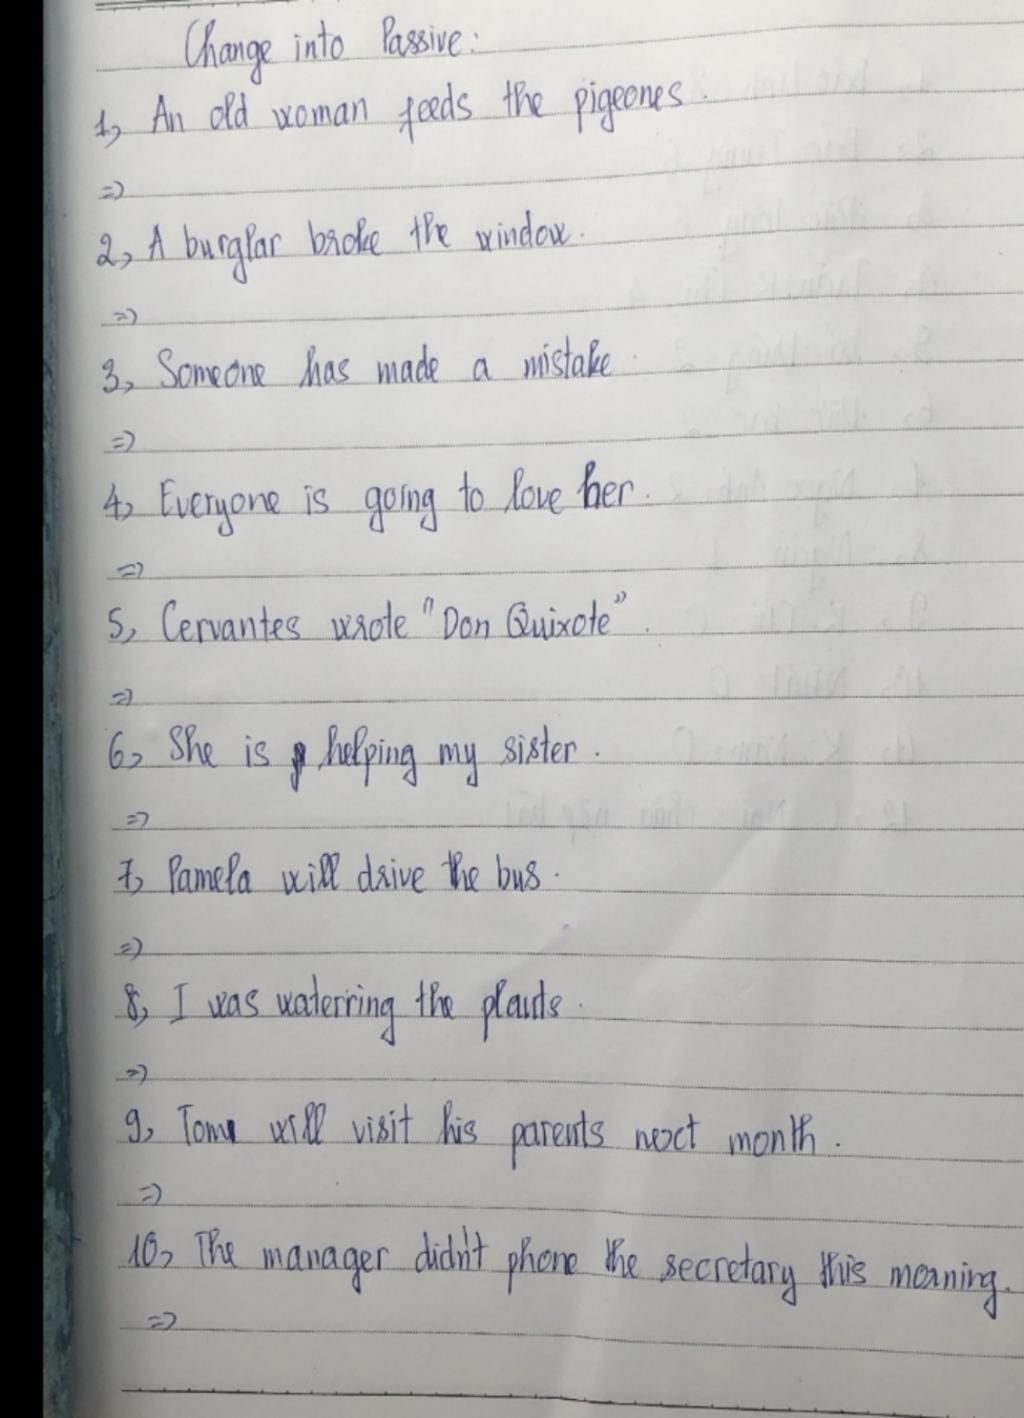 Change into Passive:
1, An old woman feeds the pigeones.
=>
2, A burglar broke the window.
=>
3, Someone has made a mistake.
=>
4, Everyone is going to love her.
=>
5, Cervantes wrote "Don Quixote".
=>
6, She is helping my sister.
=>
7, Pamela will drive the bus.
=>
8, I was waterring the plants.
=>
9, Tom will visit his parents next month.
=>
10, The manager didn't phone the secretary this morning.
=>